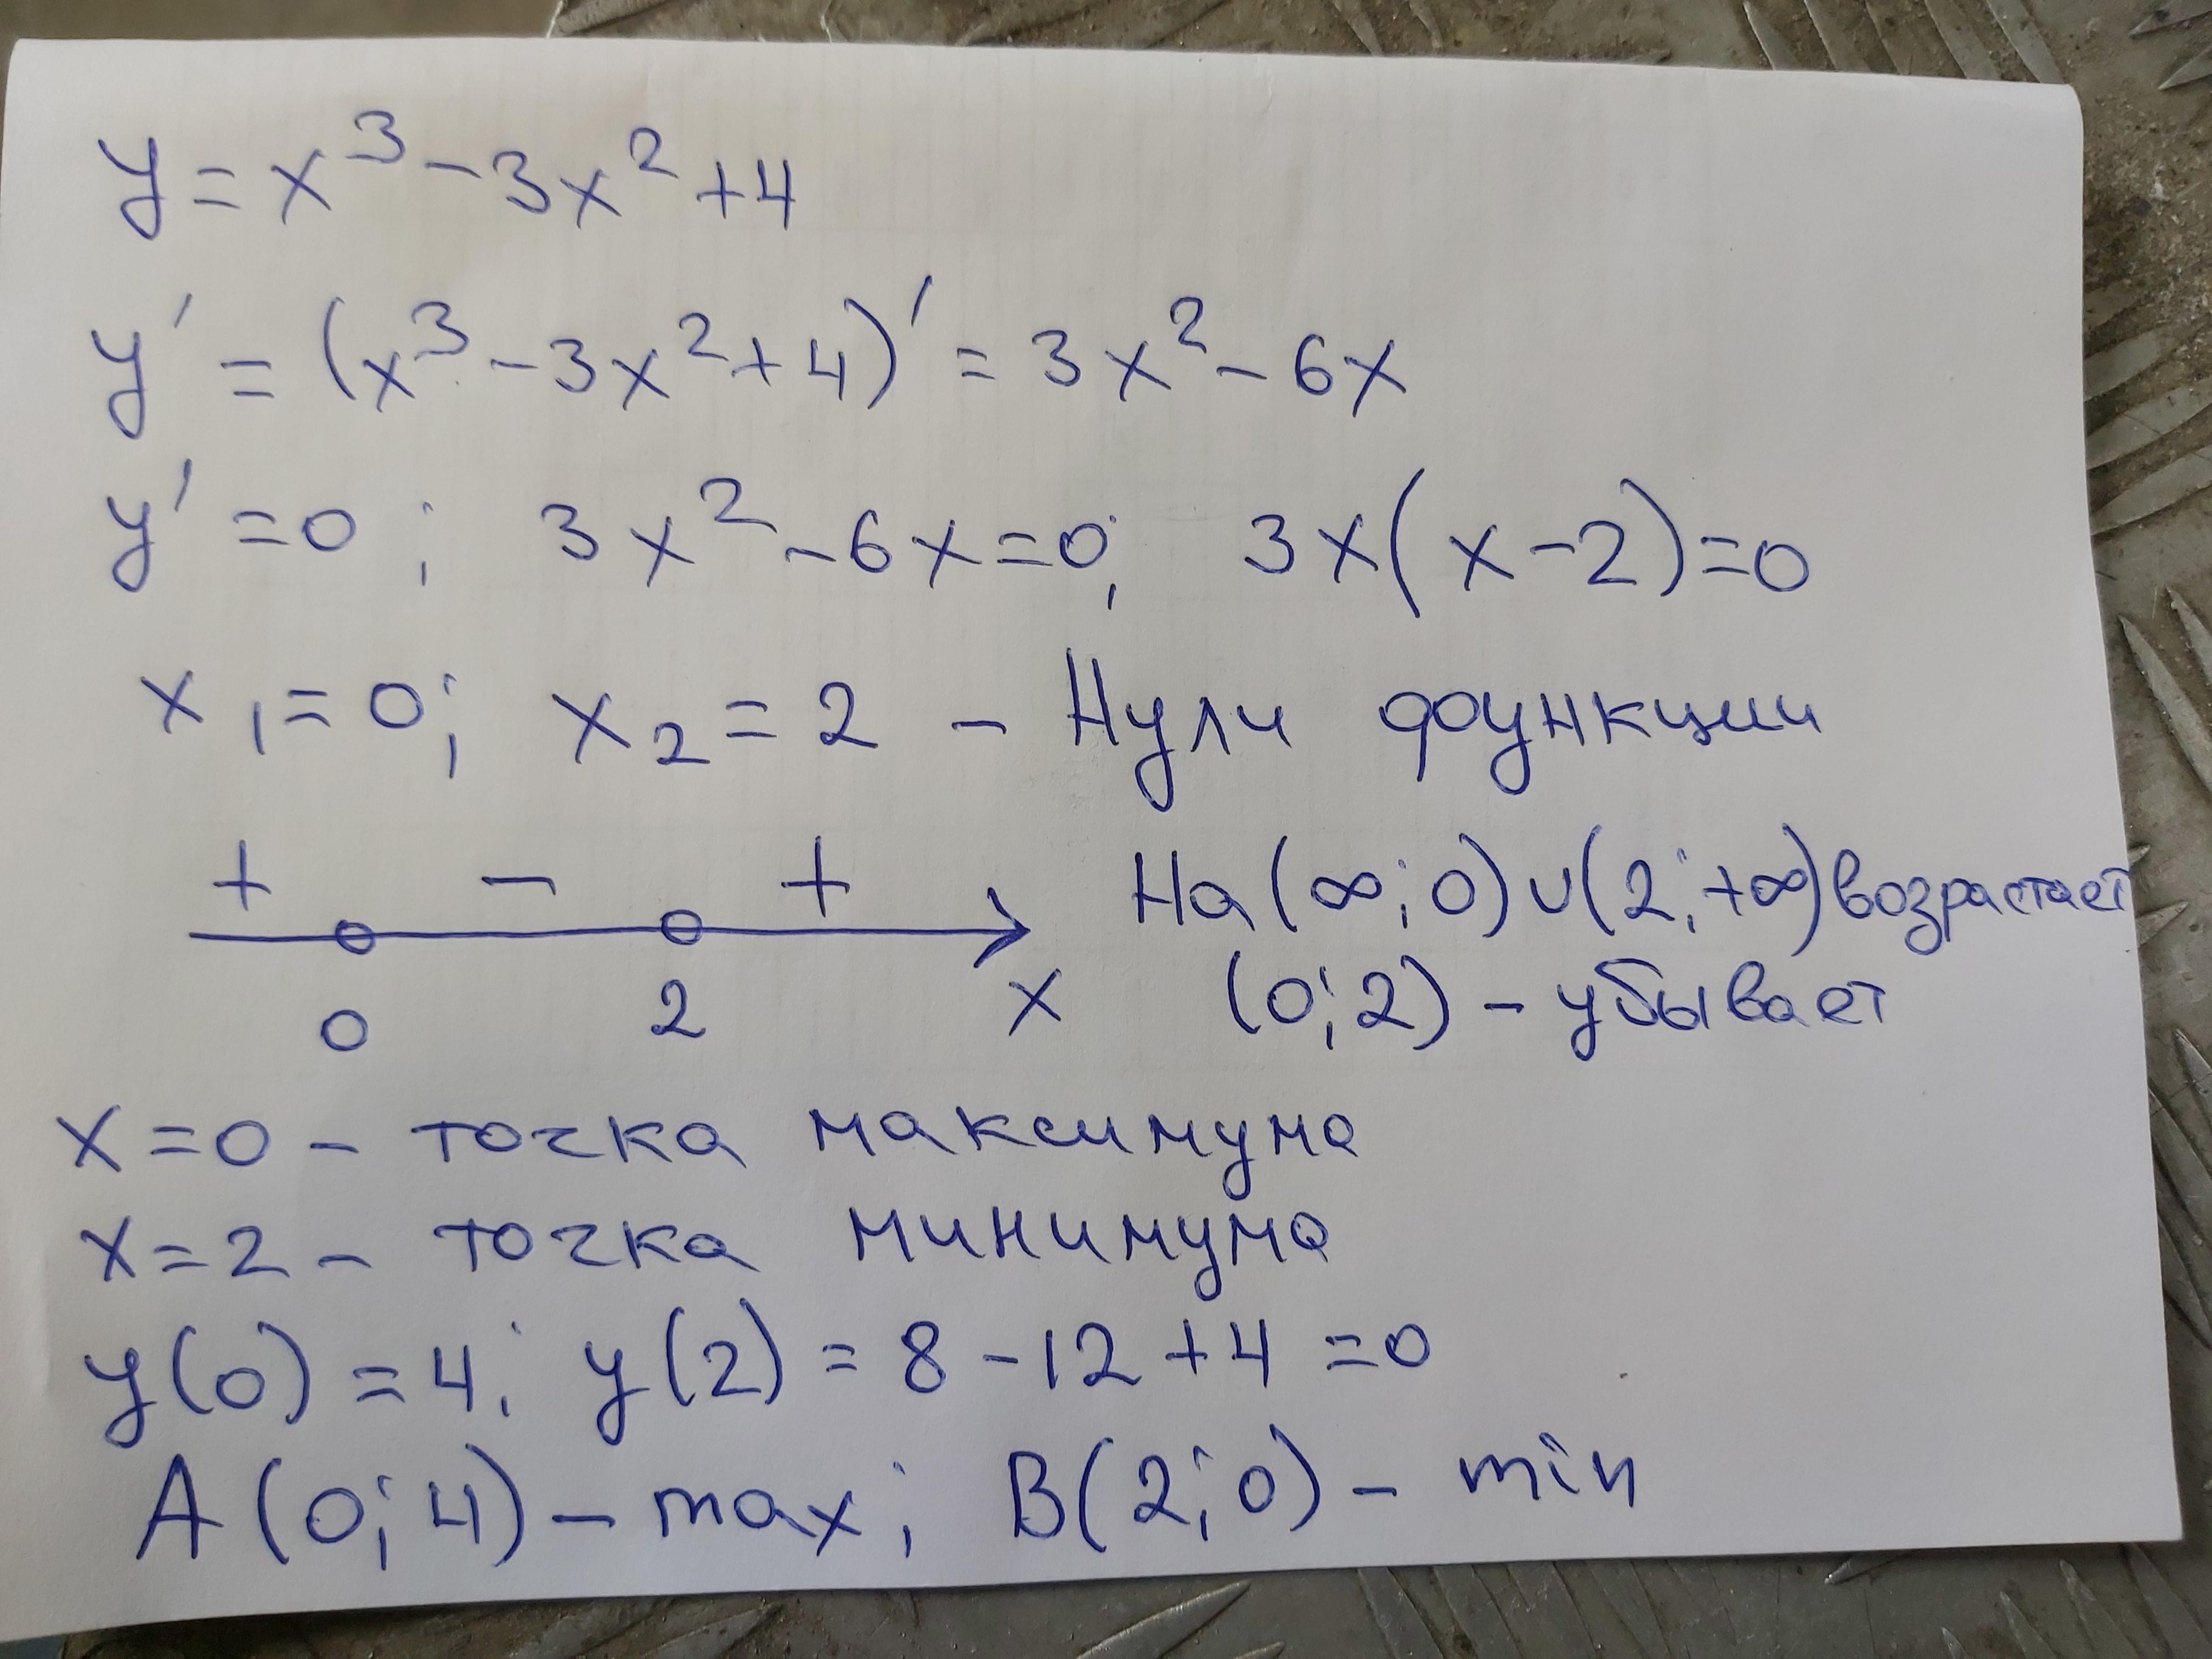 y = x³ - 3x² + 4
y' = (x³ - 3x² + 4)' = 3x² - 6x
y' = 0 ; 3x² - 6x = 0; 3x(x - 2) = 0
x₁ = 0; x₂ = 2 - Нули функции
+ - + На (∞; 0) ∪ (2; +∞) возрастает
0 2 x (0; 2) - убывает
x = 0 - точка максимума
x = 2 - точка минимума
y(0) = 4; y(2) = 8 - 12 + 4 = 0
A(0; 4) - max; B(2; 0) - min